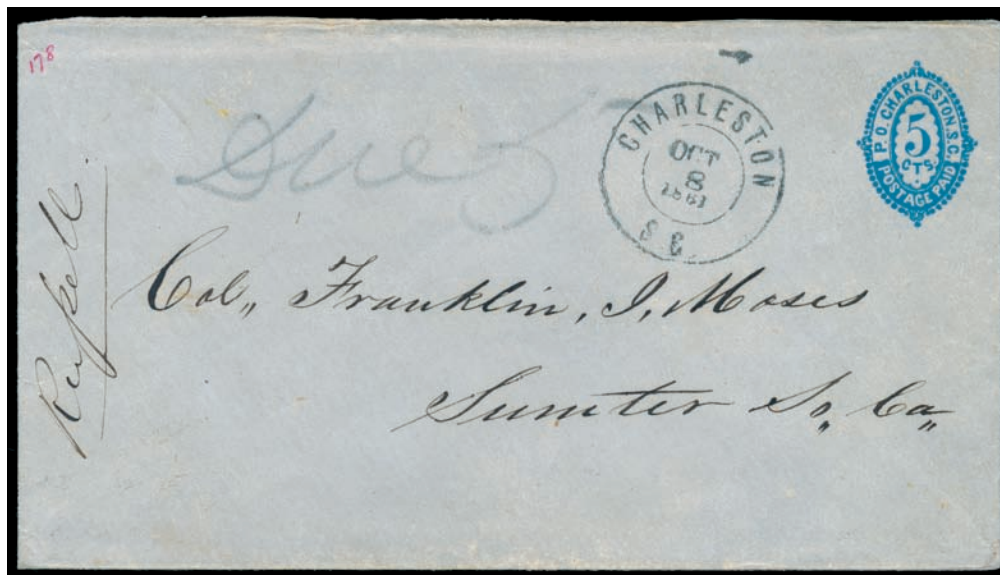 178
Due 5
CHARLESTON
OCT
8
1861
S C
P.O. CHARLESTON. S.C.
5
CTS
POSTAGE PAID
Col,, Franklin, J, Moses
Sumter So,, Ca,,